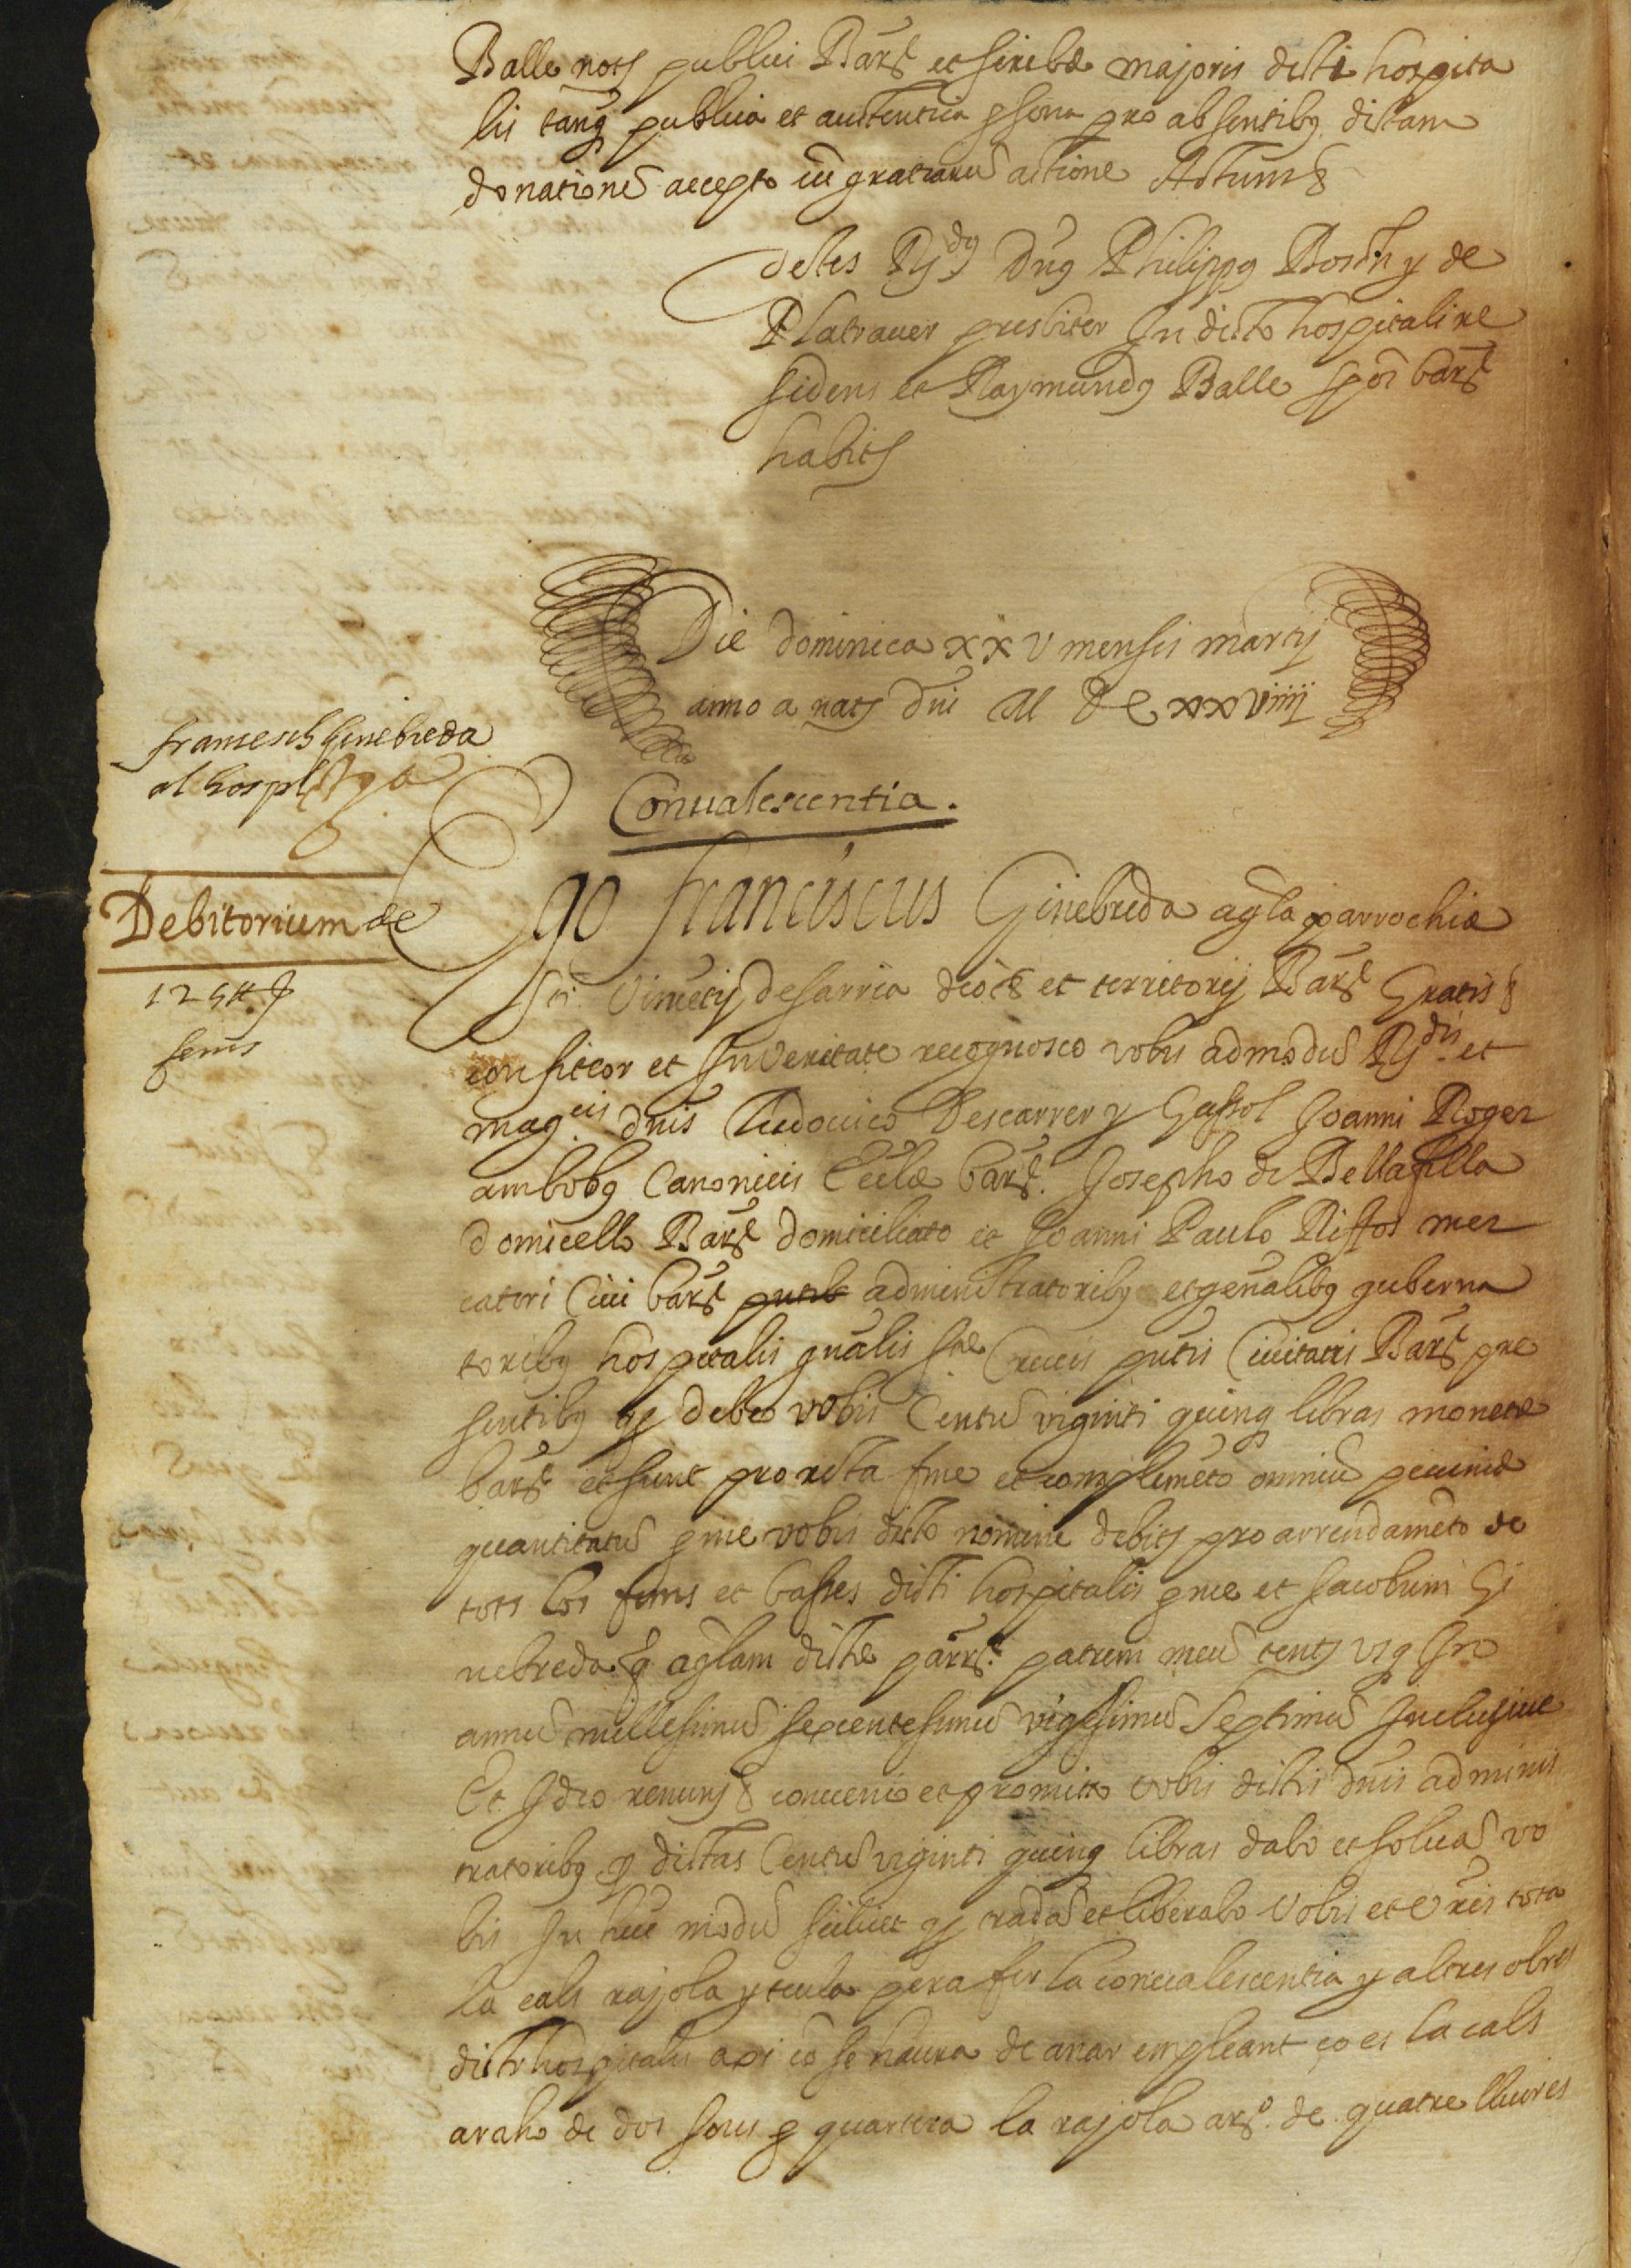 Balle nots publici Barñ et scribæ majoris dicti hospita
lis tanq publica et autentica psona pro absentibq dictam
donationē accepto cū gratiarū actione Actum &
Testes Rdq Dnq Philippq Bosch y de
Platraver presbiter In dicto hospitali re
sidens et Raymundq Balle Barñ
habits
Die dominica xxv mensis martij
anno a nats Dni M DC xxviiij
francesch Ginebreda
al hospl
Convalescentia.
Debitorium de
125 ll
fems
Ego Franciscus Ginebreda agla parrochiæ
Sti Vincētij de Sarria dioc & et territorij Barñ Gratis &
confiteor et In Veritate recognosco vobis admodū Rdis et
magcis dnis Ludovico Descarrer y Gassol Joanni Roger
ambobq Canonicis Ecclæ barñ. Josepho de Bellafilla
domicello Barñ domiciliato et Joanni Paulo Riffos mer
catori Civi barñ administratoribq et genālibq guberna
toribq hospitalis gnālis Stæ Crucis pntis Civitatis Barñ pre
sentibq q debeo vobis Centū viginti quinq libras monetæ
barñ et sunt pro resta fine et complemēto omniū pecuniæ
quantitatū p me vobis dicto nomine debits pro arrendamēto de
tots los fems et basses dicti hospitalis p me et Jacobum Gi
nebreda q aglam dictæ parrñ. patrem meū tents usq In
annū millesimū sexcentesimū vigesimū Septimū Inclusive
Et Ideo renuns & convenio et promitto vobis dictis dnis adminis
tratoribq q dictas Centū viginti quinq libras dabo et solvā vo
bis In hūc modū scilicet q tradā et liberabo Vobis et vris tota
la cals rajola y teula pera fer la convalescentia y altres obres
dicti hospitalis axi cō se haura de anar empleant ço es la cals
a raho de dos sous p quartera la rajola a rº. de quatre lliures